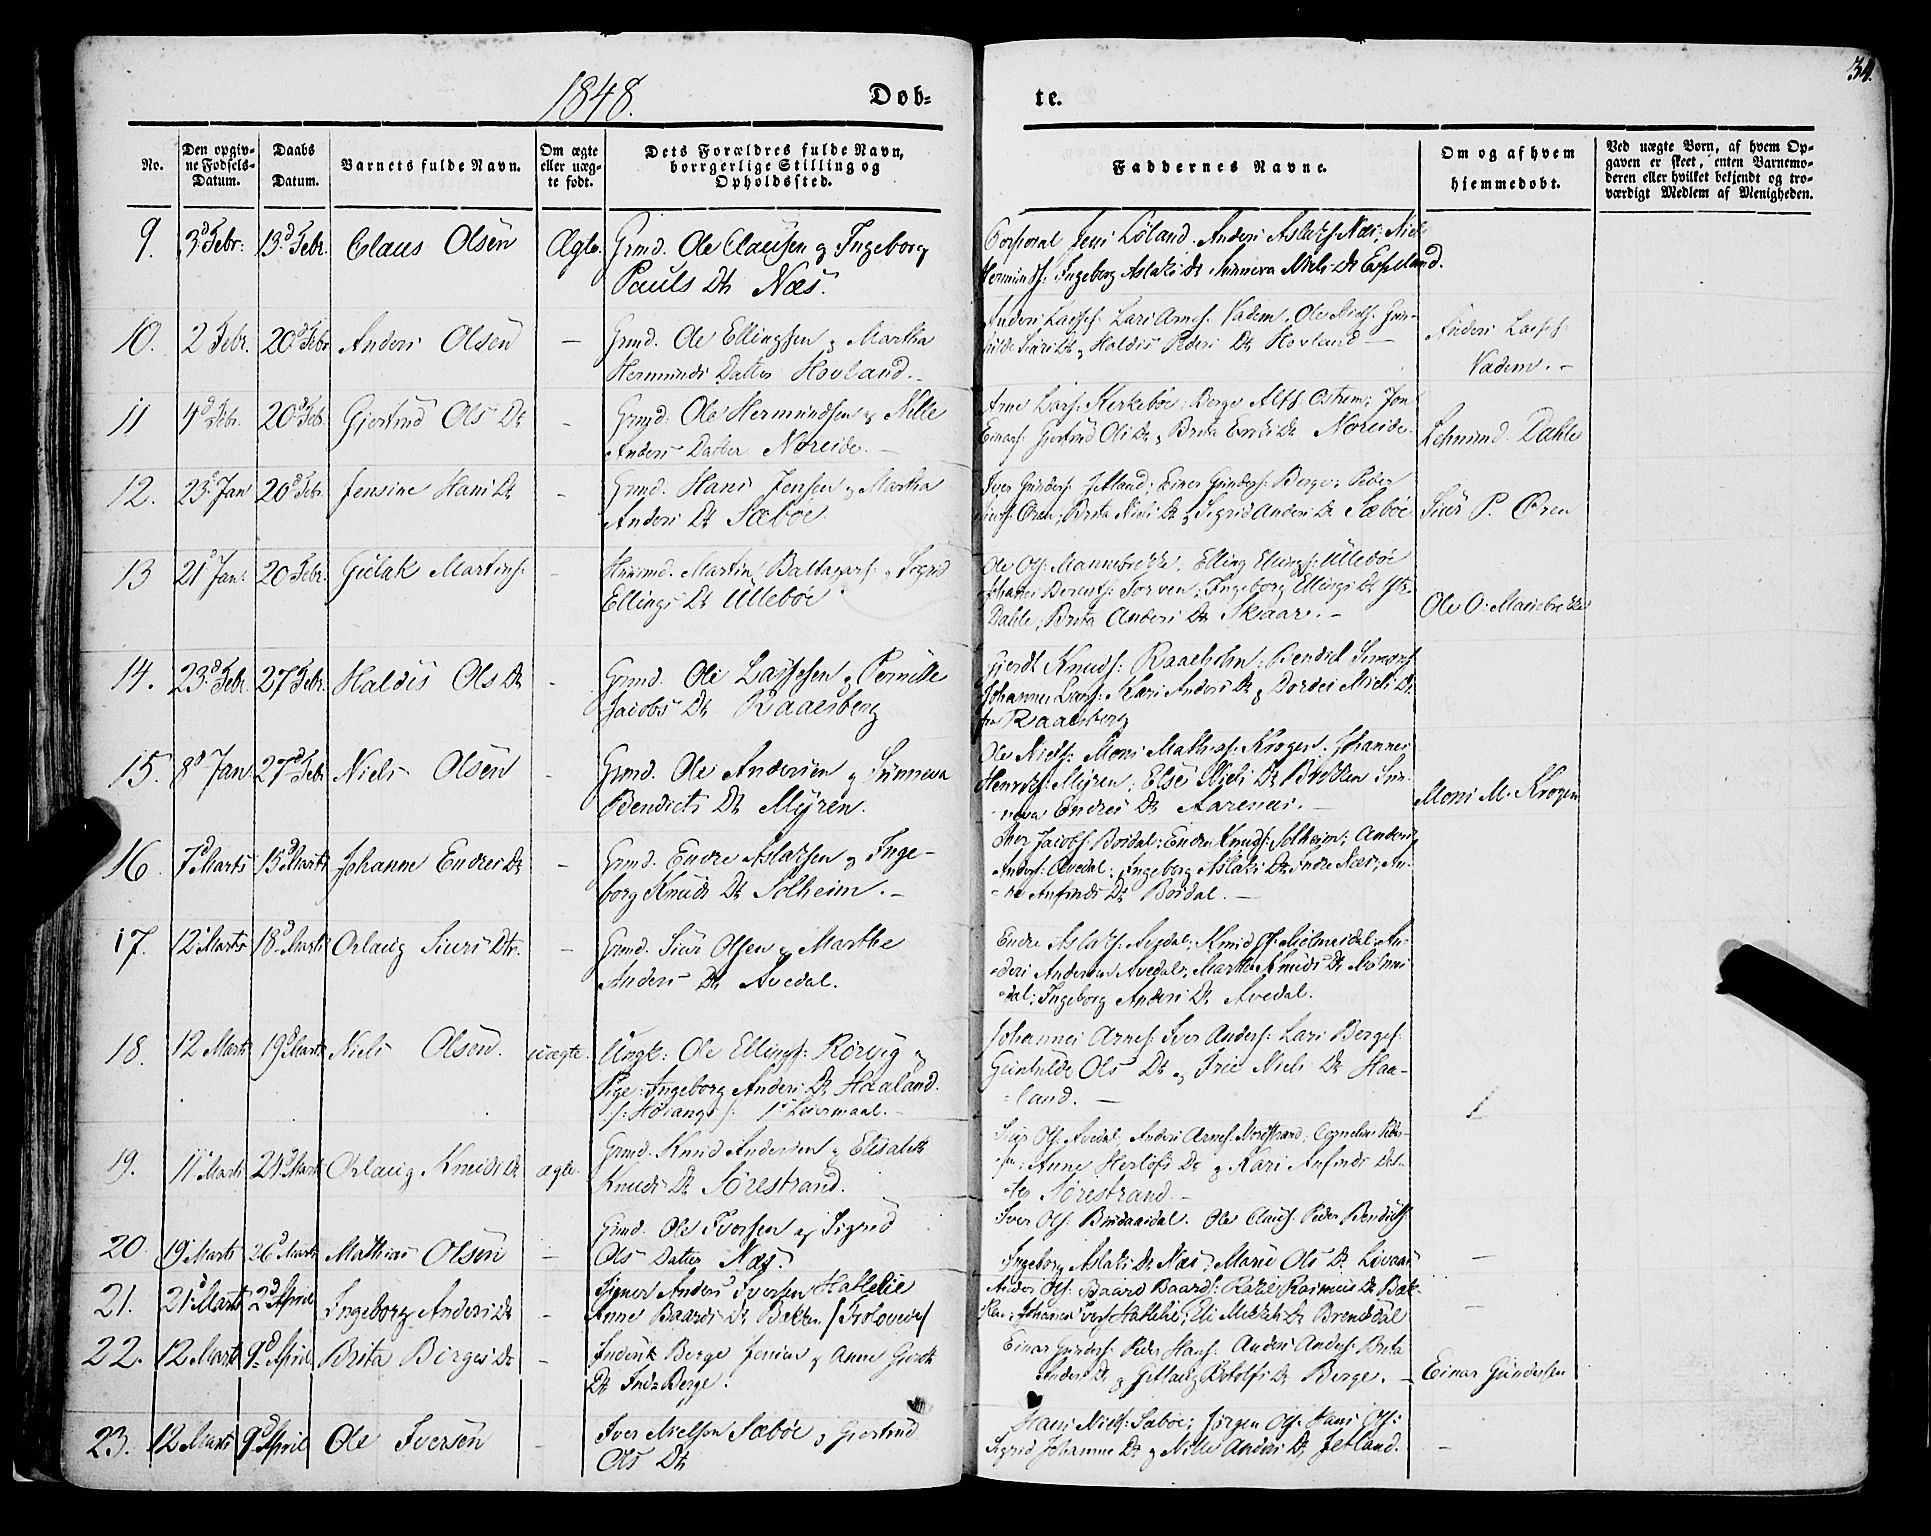 1848.
Døb=
te.
34.
No.
Den opgiv-
ne Fødsels-
Datum.
Daabs
Datum.
Barnets fulde Navn.
Om ægte
eller uæg-
te født.
Dets Forældres fulde Navn,
borgerlige Stilling og
Opholdssted.
Faddernes Navne.
Om og af hvem
hjemmedøbt.
Ved uægte Børn, af hvem Op-
gaven er skeet, enten Barnemo-
deren eller hvilket bekjendt og tro-
værdigt Medlem af Menigheden.
9. 3d Febr: 13d Febr. Claus Olsen Ægte. Grmd. Ole Clausen og Ingeborg
Pauls Dr Næs.
Corporal Jens Løland. Anders Aslaks. Næs, Niels
Hermunds: Ingeborg Aslaks Dr Sunneva Niels Dr Espeland.
10. 2 Febr. 20d Febr Anders Olsen — Grmd. Ole Ellingsen og Martha
Hermunds Datter Hovland. -
Anders Lasses: Lars Arnes. Vadem, Ole Niels. Gun-
hilde Siurs Dr og Haldis Peders Dr Hovland —
Anders Lasses:
Vadem. -
11 4d Febr. 20d Feb. Gjertrud Ols Dr - Grmd. Ole Hermundsen og Nille
Anders Datter Noreide. -
Arne Lars. Kirkebøe; Berge Alfs. Østrem; Jon
Einars: Gjertrud Ols Dr og Brita Eriks Dr Noreide.
Lehnsmd. Dahle
12. 23d Jan 20d Febr. Jensine Hans Dr - Grmd. Hans Jensen og Martha
Anders Dr Sæbøe.
Iver Gunders. Jetland; Einer Gunders: Berge; Peder
Øren; Brita Niels Dr og Sigrid Anders Dr Sæbøe
Siur P. Øren
13 21d Jan: 20 Febr. Gulak Martins. - Huusmd. Martin Baltazars: og Sigrid
Ellings Dr Ullebøe.
Ole Ols. Mannebrekke; Elling Ellings: Ullebøe
Johannes Berents: Torven; Ingeborg Ellings Dr Ytr.
Dahle; Brita Anders Dr Skaar. -
Ole O: Manebrekke
14. 23d Febr. 27 Febr. Haldis Ols Dr - Grmd. Ole Lassesen og Pernille
Jacobs Dr Raaesberg
Gjerdt Knuds: Raaeholm; Bendict Simons
Johannes Lars: Kari Anders Dr og Dordei Niels Dr
fra Raaesberg
15. 8d Jan 27d Febr Niels Olsen - Grmd. Ole Andersen og Sunneva
Bendicts Dr Myren.
Ole Niels: Mons Mathias: Krogen. Johannes
Henriks: Myren; Else Niels Dr Brekken Sun-
neva Endres Dr Aarenæs. -
Mons M. Krogen
16. 7d Marts 15d Marts Johanne Endres Dr — Grmd. Endre Aslaksen og Inge-
borg Knuds Dr Solheim. -
Thor Jacobs. Bordal; Endre Knuds: Solheim; Anders
Anders: Avedal; Ingeborg Aslaks Dr Indre Næs, An-
ne Anfinds Dr Bordal. —
17. 12d Marts 18d Marts Orlaug Siurs Dtr. — Grmd. Siur Olsen og Marthe
Anders Dr Avedal.
Endre Aslaks. Avedal; Knud Ols. Mielmesdal; An-
ders Andersen Avedal; Martha Knuds Dr
dal; Ingeborg Anders Dr Avedal.
18. 12 Marts 19d Marts Niels Olsen. uægte. Ungk: Ole Ellings: Rørvig og
Pige: Ingeborg Anders Dr Haaland.
1d Leiermaal. -
Johannes Arnes. Iver Anders: Lars Berges:
Gunhilde Ols Dr og Niels Dr Haa-
land. —
19. 11d Marts 24d Marts Orlaug Knuds Dr ægte. Grmd. Knud Andersen og Elisabeth
Knuds Dr Sørestrand.
Siur Ols. Avedal; Anders Arnes. Nordstrand; Cornelius Peder-
sen; Anne Herlofs Dr og Kari Anfinds Dat-
ter Sørestrand. -
20. 19d Marts 26d Marts Mathias Olsen — Grmd. Ole Iversen og Sigrid
Ols Datter Næs.
Iver Ols: . Ole Claus. Peder Bendicts
Ingeborg Aslaks Dr Næs; Marie Ols Dr
—
21. 21d Marts 2d April Ingeborg Anders Dr - Signor Anders Iversen Hatlelie
Anne Baards Dr Bakken /Trolovede/
Anders Ols. Baard Baards: Rasmus Dr Bak-
ken; Johannes Ivers Hatlelie; Eli Mikkels Dr Brendedal
—
22. 12 Marts 9d April Brita Børges Dr - Inderst Berge Jensen og Anne Gjerts
Dr Indr. Berge.
Einar Gunders: Peder Hans: Anders Anders: Brita
Anders Dr og Gitlaug Botolfs Dr Berge. -
Einar Gundersen
23. 12 Marts 9d April Ole Iversen - Iver Nielsen Sæbøe og Gjertrud
Ols Dr
Hans Niels: Sæbøe; Jørgen Ols: Hans Ols:
Sigrid Johanne Dr og Nille Anders Dr Jetland.
-